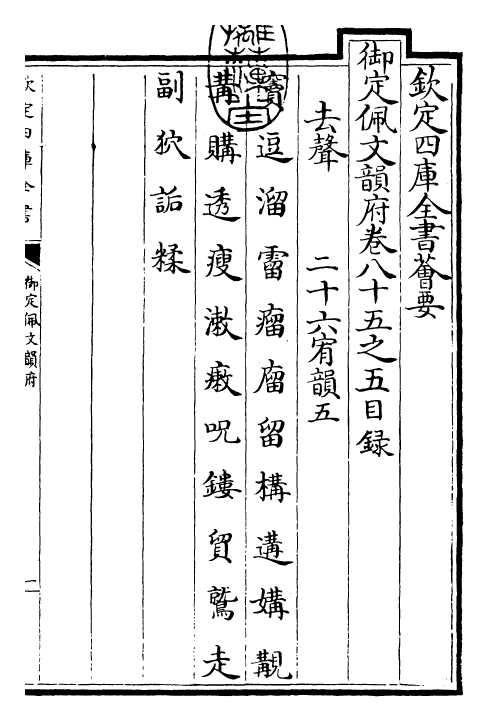 欽定四庫全書薈要
御定佩文韻府卷八十五之五目錄
去聲　二十六宥韻五
竇逗溜霤瘤廇留構遘媾覯
購透瘦漱瘷呪鏤貿鷲走
副狖詬糅
欽定四庫全書
御定佩文韻府